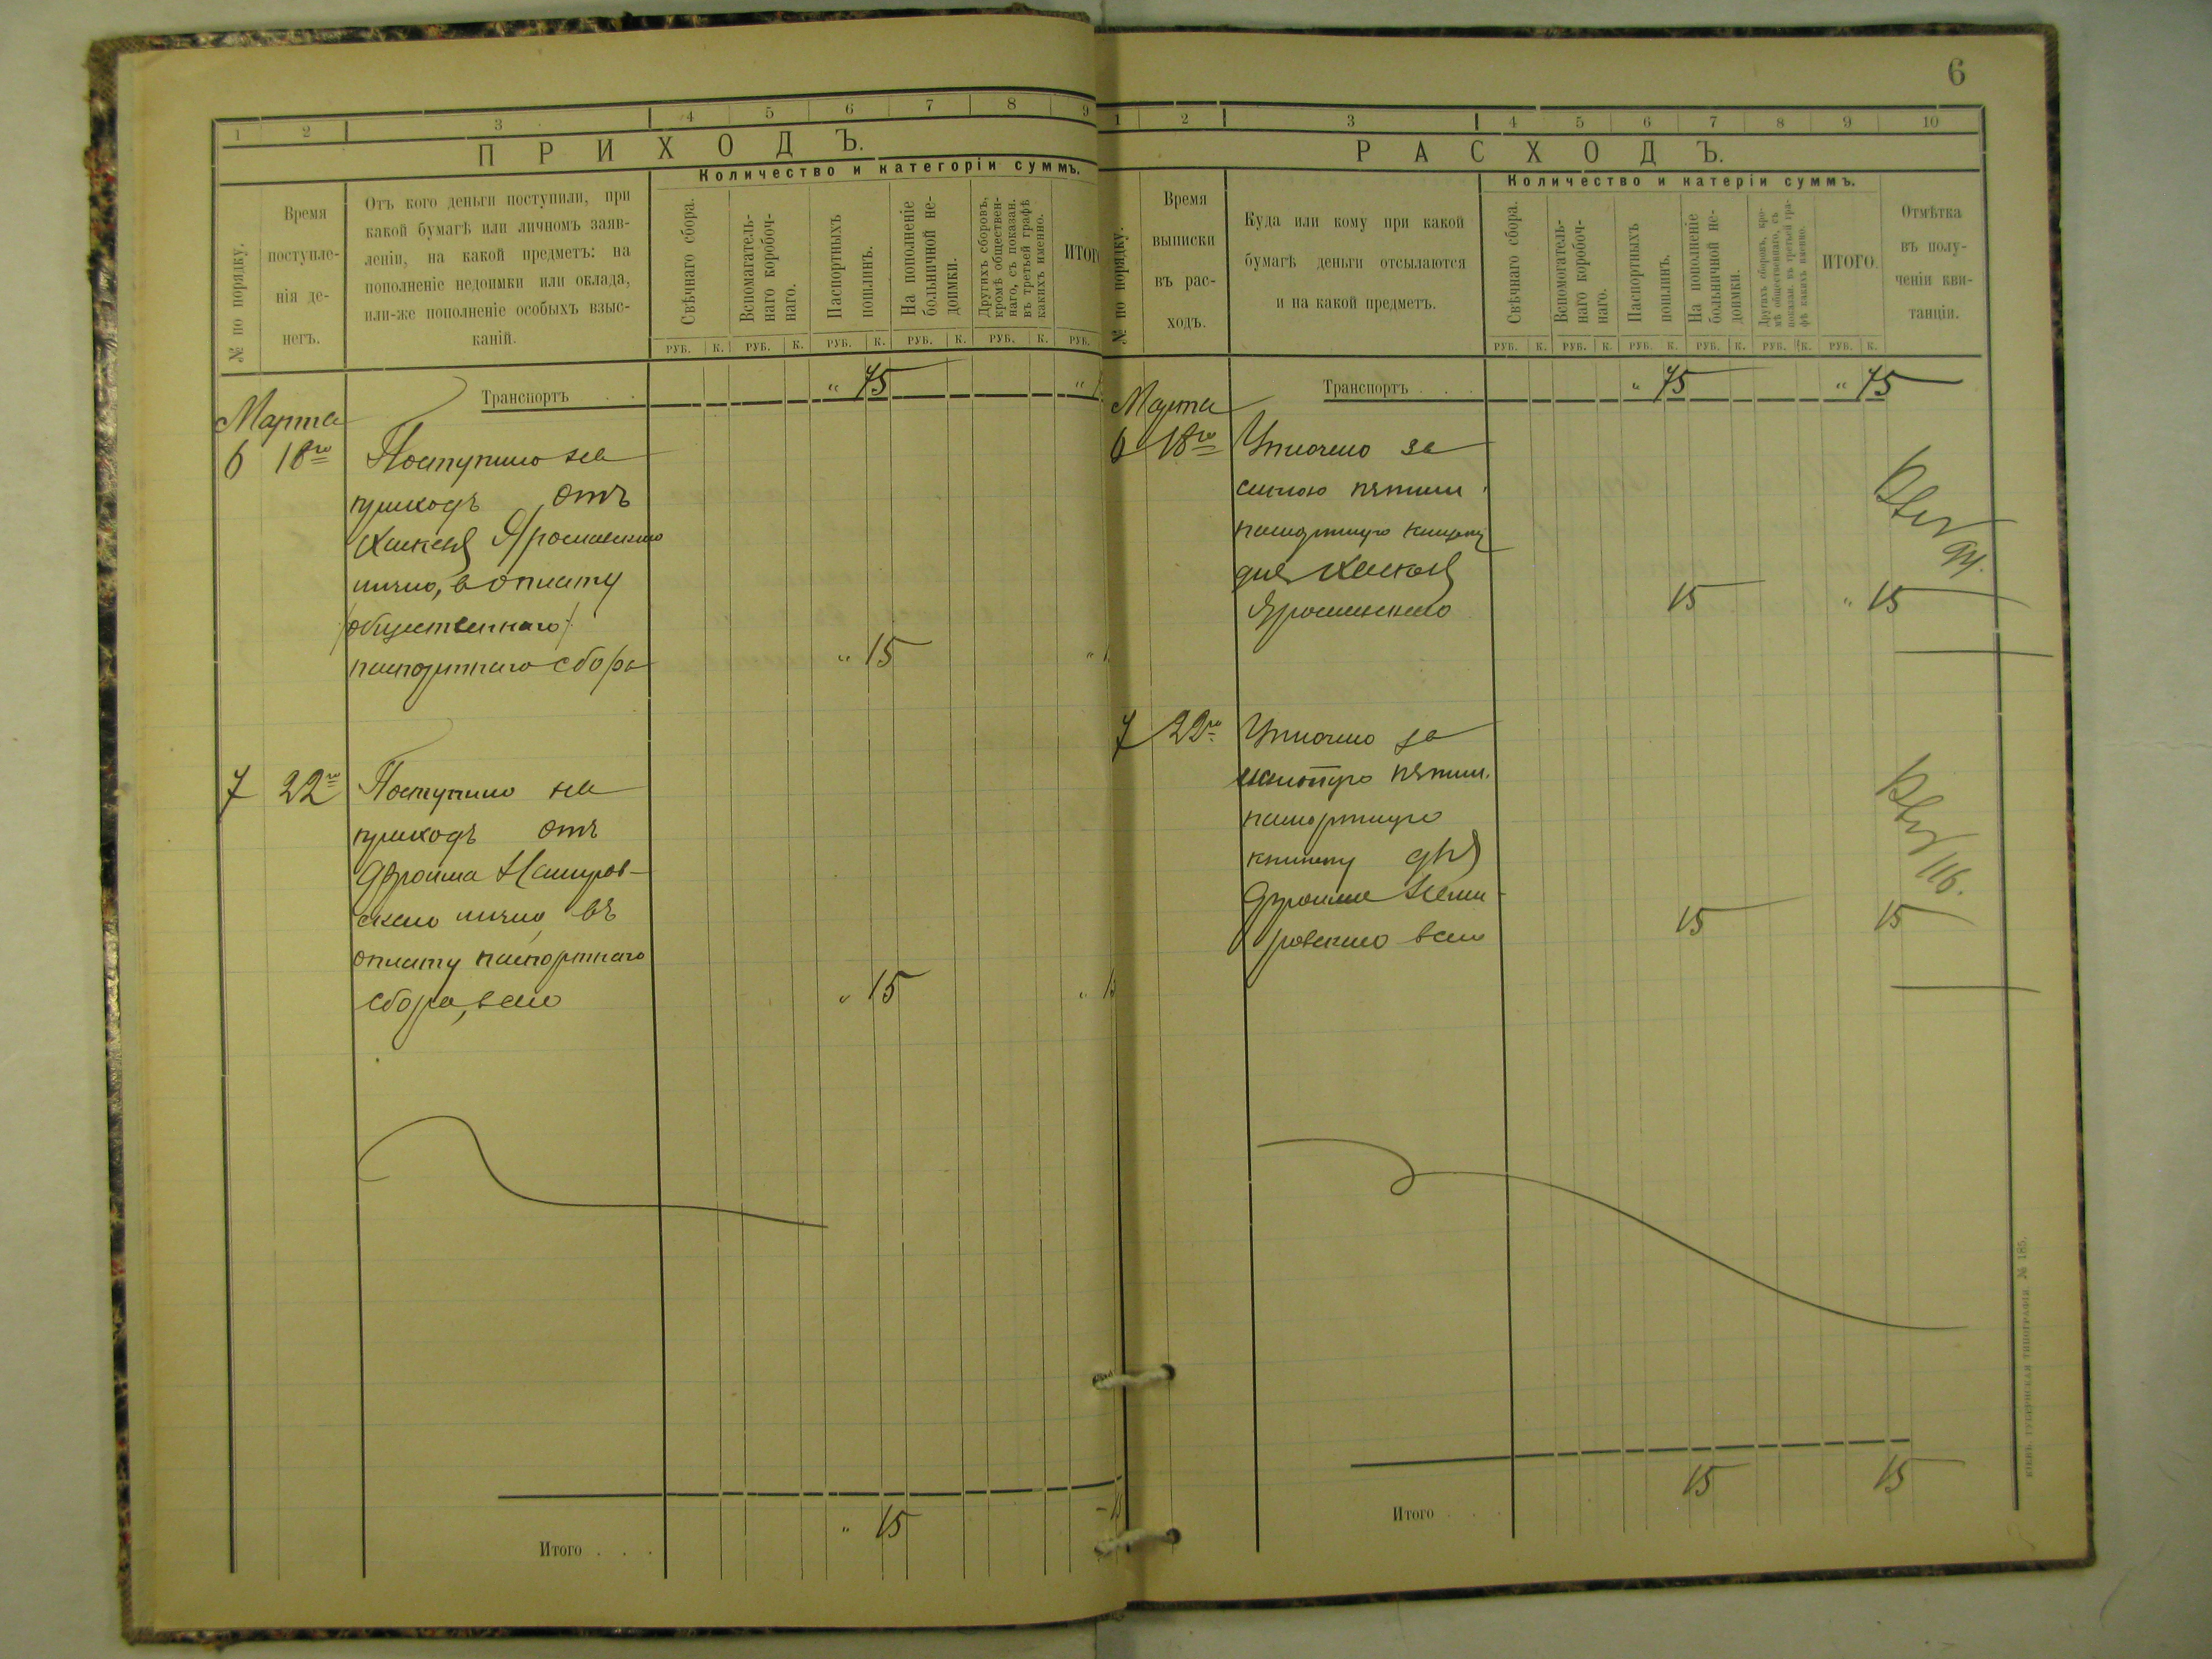 6
1 2 3 4 5 6 7 8 9
ПРИХОДЪ.
Количество и категоріи суммъ.
№ по порядку.
Время
поступле-
нія де-
негъ.
Отъ кого деньги поступили, при
какой бумагѣ или личномъ заяв-
леніи, на какой предметъ: на
пополненіе недоимки или оклада,
или-же пополненіе особыхъ взыс-
каній.
Свѣчнаго сбора.
Вспомагатель-
наго коробоч-
наго.
Паспортныхъ
пошлинъ.
На пополненіе
больничной не-
доимки.
Другихъ сборовъ,
кромѣ обществен-
наго, съ показан.
въ третьей графѣ
какихъ именно.
ИТОГО
РУБ. К. РУБ. К. РУБ. К. РУБ. К. РУБ. К. РУБ.
Транспортъ . . " 75 "
Марта
6 18го Поступило на
приходъ отъ
Ярославскаго
лично, в оплату
/общественнаго/
паспортнаго сбора " 15 "
7 22го Поступило на
приходъ отъ
Фроима
скаго лично въ
оплату паспортнаго
сбора, всего " 15 " 15
Итого . . . " 15
1 2 3 4 5 6 7 8 9 10
РАСХОДЪ.
Количество и катеріи суммъ.
№ по порядку.
Время
выписки
въ рас-
ходъ.
Куда или кому при какой
бумагѣ деньги отсылаются
и на какой предметъ.
Свѣчнаго сбора.
Вспомогатель-
наго коробоч-
наго.
Паспортныхъ
пошлинъ.
На пополненіе
больничной не-
доимки.
Другихъ сборовъ, кро-
мѣ общественнаго, съ
показан. въ третьей гра-
фѣ какихъ именно.
ИТОГО.
Отмѣтка
въ полу-
ченіи кви-
танціи.
РУБ. К. РУБ. К. РУБ. К. РУБ. К. РУБ. К. РУБ. К.
Транспортъ . . . " 75 " 75
Марта
6 18го Уплочено за
пятил.
паспортную книжку
для
15 " 15
7 22го Уплочено за
пятил.
паспортную
книжку для
Фроима Неми-
ровскаго всего 15 15
116.
Итого . . . 15 15
КІЕВЪ. ГУБЕРНСКАЯ ТИПОГРАФІЯ. № 185.